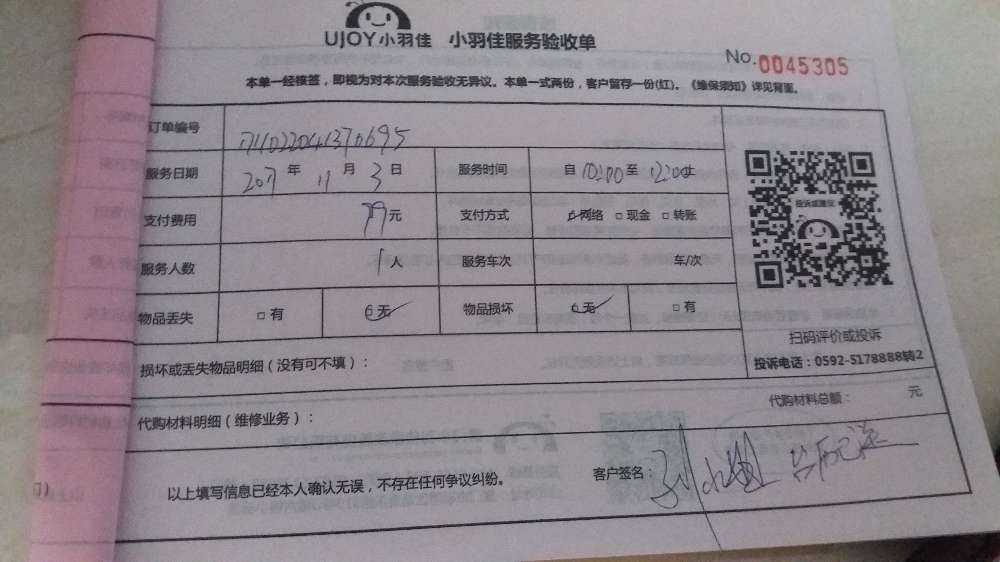 UJOY小羽佳 小羽佳服务验收单
No.0045305
本单一经接签，即视为对本次服务验收无异议。本单一式两份，客户留存一份(红)。《维保须知》详见背面。
订单编号
服务日期 2017 年 11 月 3 日 服务时间 自 10:00 至 12:00止
支付费用 79元 支付方式 □网络 □现金 □转账
服务人数 1人 服务车次 车/次
物品丢失 □有 □无 物品损坏 □无 □有
投诉或建议
扫码评价或投诉
投诉电话：0592-5178888转2
损坏或丢失物品明细（没有可不填）：
代购材料明细（维修业务）： 代购材料总额： 元
以上填写信息已经本人确认无误，不存在任何争议纠纷。 客户签名：